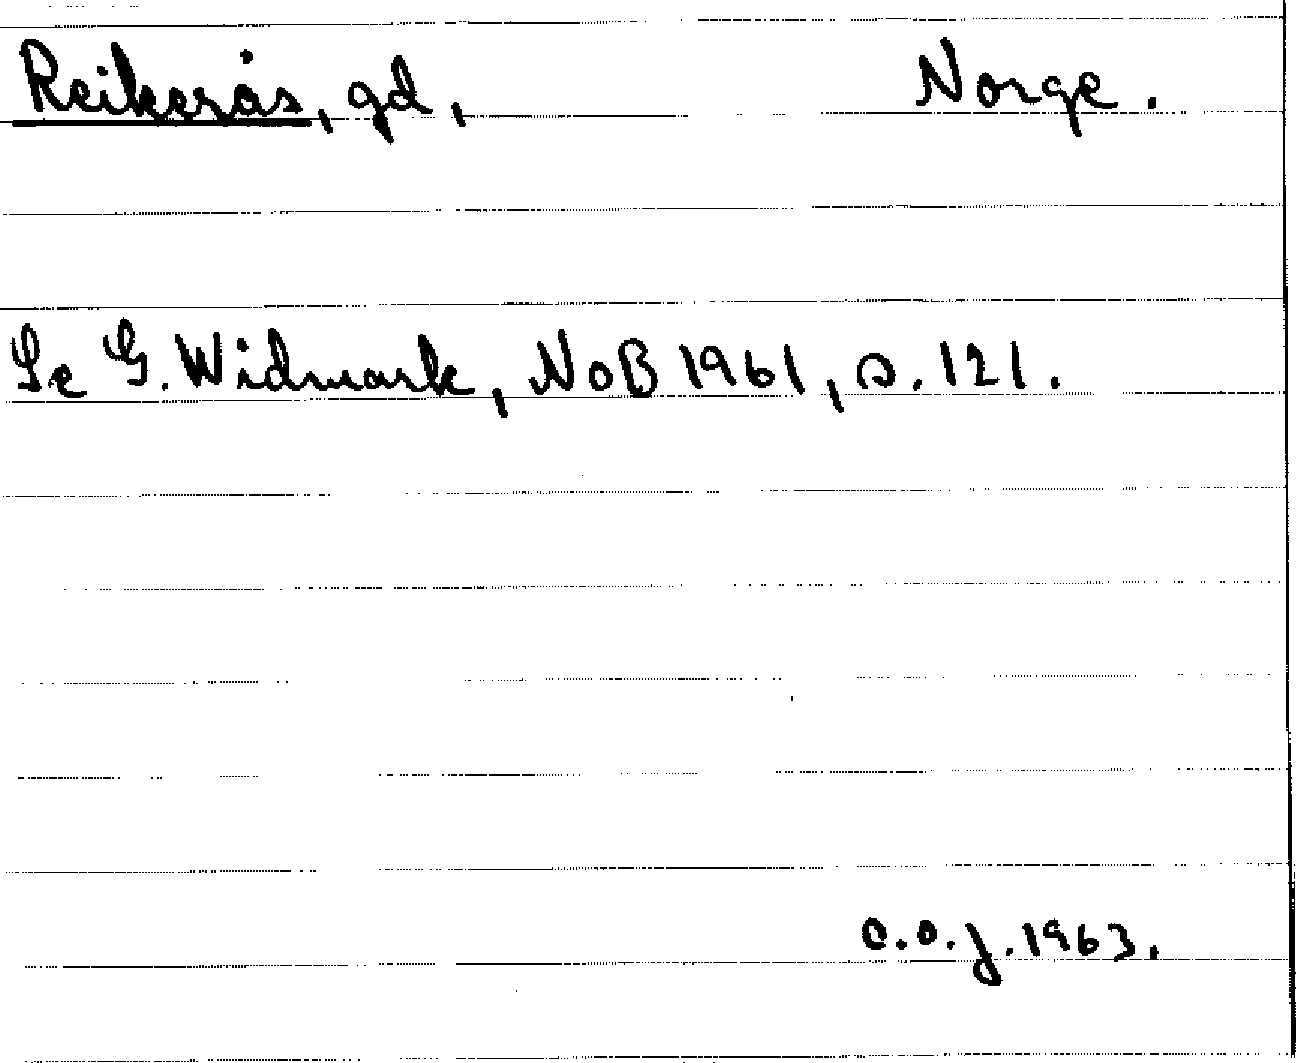 Reikerås, gd, Norge.
Se G. Widmark, NoB 1961, s. 121.
C.O.J. 1963.